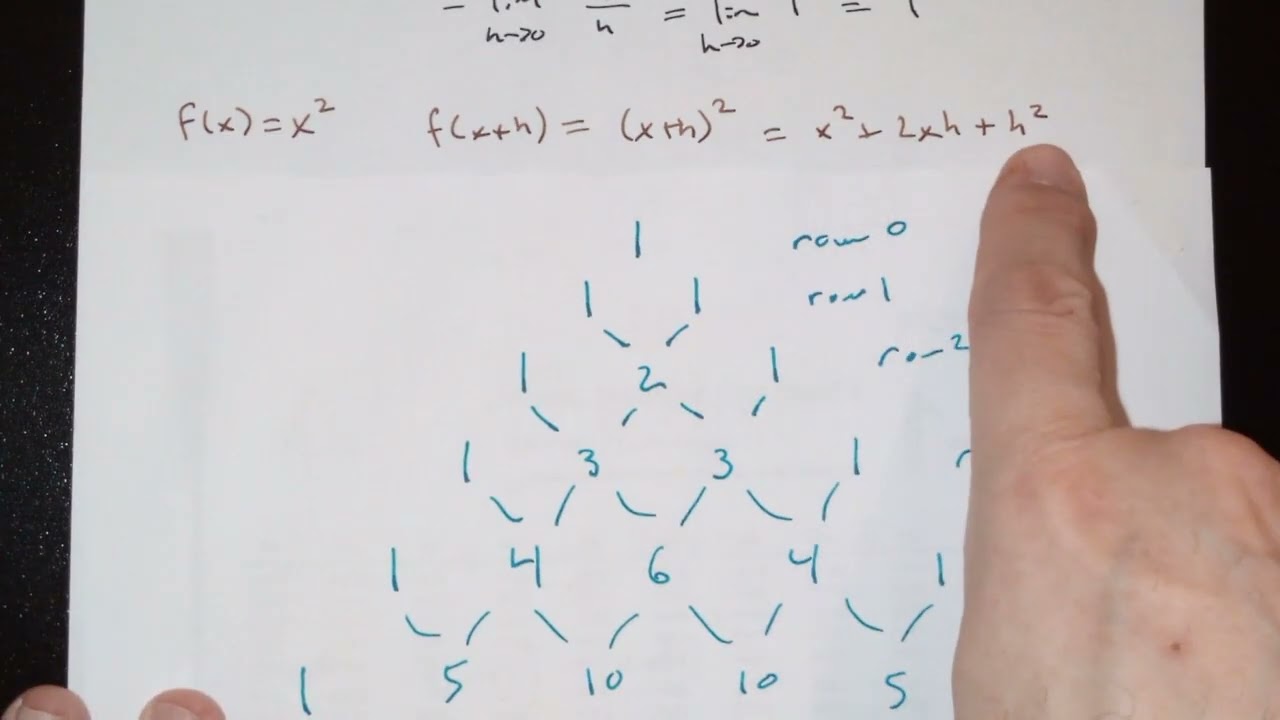 = lim h→0 h = lim h→0 1 = 1
f(x) = x² f(x+h) = (x+h)² = x² + 2xh + h²
1 row 0
1 1 row 1
1 2 1 row 2
1 3 3 1
1 4 6 4 1
1 5 10 10 5